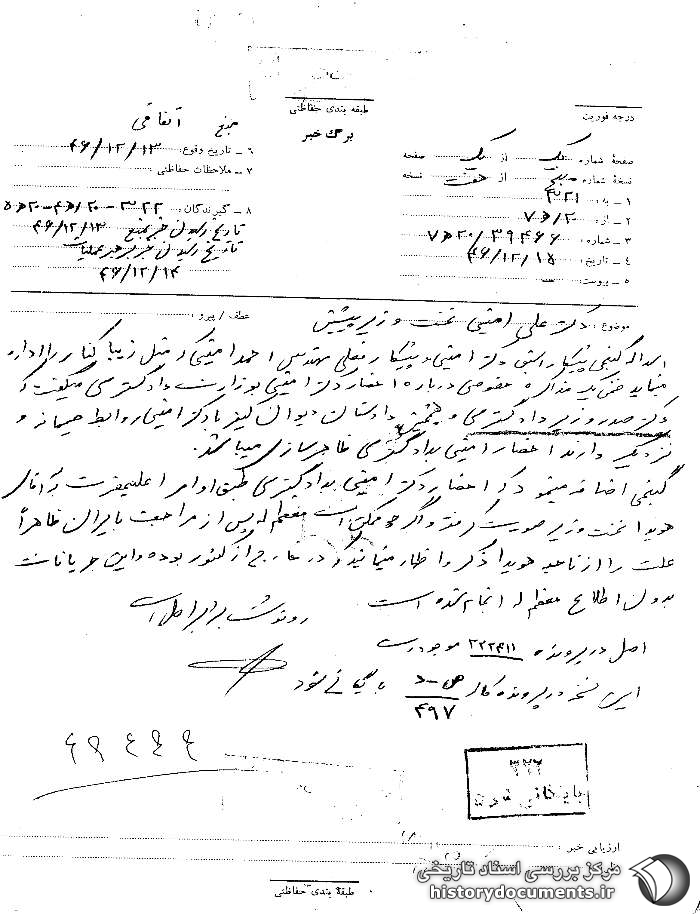 طبقه بندی حفاظتی
درجه فوریت
برگ خبر
منبع اتفاقی
صفحهٔ شماره یک از یک صفحه
نسخهٔ شماره پنج از هفت نسخه
۱ـ به: ۳۲۱
۲ـ از: ۲۰ ه‍ ۷
۳ـ شماره: ۳۹۴۶۶ / ۲۰ ه‍ ۷
۴ـ تاریخ: ۴۶/۱۲/۱۵
۵ـ پیوست:
۶ـ تاریخ وقوع: ۴۶/۱۲/۱۳
۷ـ ملاحظات حفاظتی:
۸ـ گیرندگان: ۳۲۲
تاریخ رسیدن خبر بمنبع ۴۶/۱۲/۱۳
تاریخ رسیدن خبر برهبر عملیات
۴۶/۱۲/۱۴
موضوع: دکتر علی امینی نخست وزیر پیشین
عطف / پیرو:
اسداله گنجی پیشکار سابق دکتر امینی و پیشکار فعلی مهندس احمد امینی که متل زیبا کنار را اداره
مینماید ضمن یک مذاکره خصوصی درباره احضار دکتر امینی بوزارت دادگستری میگفت که
دکتر صدر وزیر دادگستری و همچنین دادستان دیوان کیفر با دکتر امینی روابط صمیمانه و
نزدیک دارند احضار امینی بدادگستری ظاهرسازی میباشد.
گنجی اضافه مینمود که احضار دکتر امینی بدادگستری طبق اوامر اعلیحضرت به آقای
هویدا نخست وزیر صورت گرفته و اگر چه ممکن است معظم له پس از مراجعت بایران ظاهراً
علت را از ناحیه هویدا ذکر و اظهار مینمایند که در خارج از کشور بوده و این جریانات
بدون اطلاع معظم له انجام شده است
رونوشت برابر اصل است
اصل در پرونده ۲۲۲۴۱۱ موجود است
این نسخه در پرونده کلاسه ۴۹۷ بایگانی شود
۳۲۲
بایگانی شد
ارزیابی خبر:
طبقه بندی حفاظتی
مرکز بررسی اسناد تاریخی
historydocuments.ir